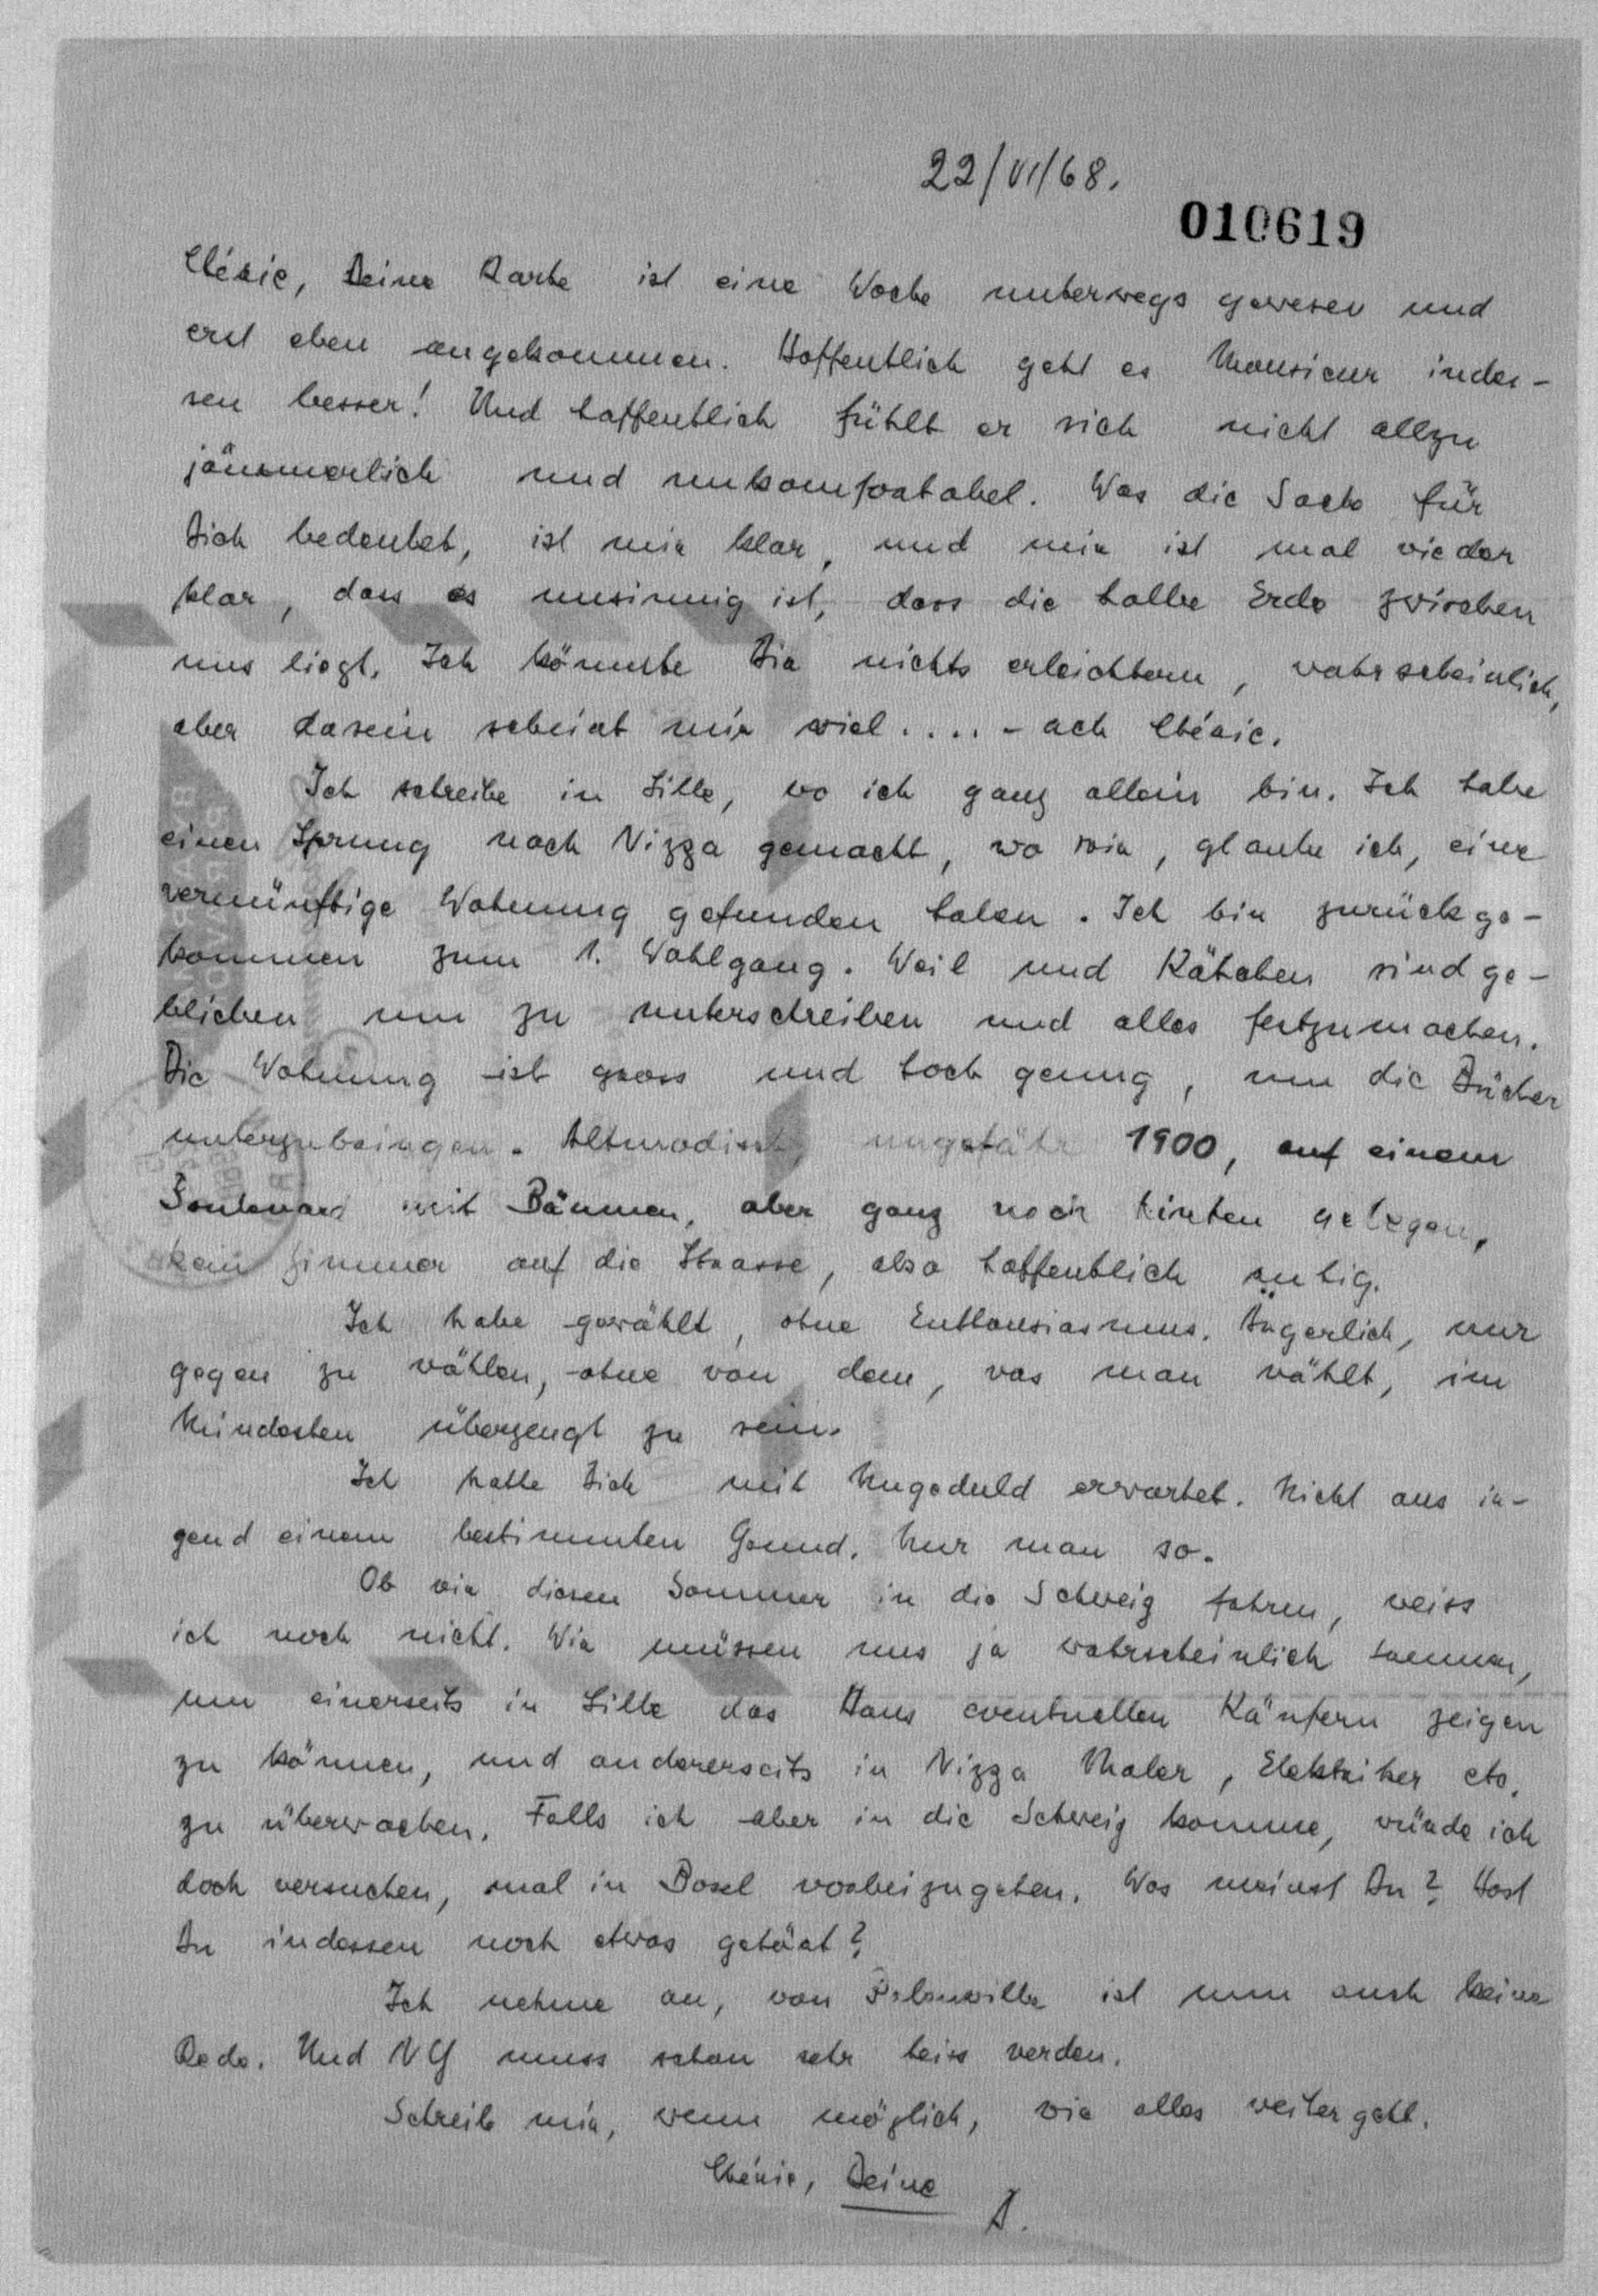 22/VI/68.
010619
Chérie, Deine Karte ist eine Woche unterwegs gewesen und
erst eben angekommen. Hoffentlich geht es Monsieur indes-
sen besser! Und hoffentlich fühlt er sich nicht allzu
jämmerlich und unkomfortabel. Was die Sache für
Dich bedeutet, ist mir klar, und mir ist mal wieder
klar, dass es unsinnig ist, dass die halbe Erde zwischen
uns liegt. Ich könnte Dir nichts erleichtern, wahrscheinlich,
aber dasein scheint mir viel.... - ach Chérie.
Ich schreibe in Lille, wo ich ganz allein bin. Ich habe
einen Sprung nach Nizza gemacht, wo wir, glaube ich, eine
vernünftige Wohnung gefunden haben. Ich bin zurückge-
kommen zum 1. Wahlgang. Weil und Käthchen sind ge-
blieben um zu unterschreiben und alles festzumachen.
Die Wohnung ist gross und hoch genug, um die Bücher
unterzubringen. Altmodisch, ungefähr 1900, auf einem
Boulevard mit Bäumen, aber ganz nach hinten gelegen,
kein Zimmer auf die Strasse, also hoffentlich ruhig.
Ich habe gewählt, ohne Enthousiasmus. Ärgerlich, nur
gegen zu wählen, ohne von dem, was man wählt, im
Mindesten überzeugt zu sein.
Ich hatte Dich mit Ungeduld erwartet. Nicht aus ir-
gend einem bestimmten Grund. Nur man so.
Ob wir diesen Sommer in die Schweiz fahren, weiss
ich noch nicht. Wir müssen uns ja wahrscheinlich trennen,
um einerseits in Lille das Haus eventuellen Käufern zeigen
zu können, und andererseits in Nizza Maler, Elektriker etc.
zu überwachen. Falls ich aber in die Schweiz komme, würde ich
doch versuchen, mal in Basel vorbeizugehen. Was meinst Du? Hast
Du indessen noch etwas gehört?
Ich nehme an, von Palenville ist nun auch keine
Rede. Und NY muss schon sehr heiss werden.
Schreib mir, wenn möglich, wie alles weitergeht.
Chérie, Deine
A.